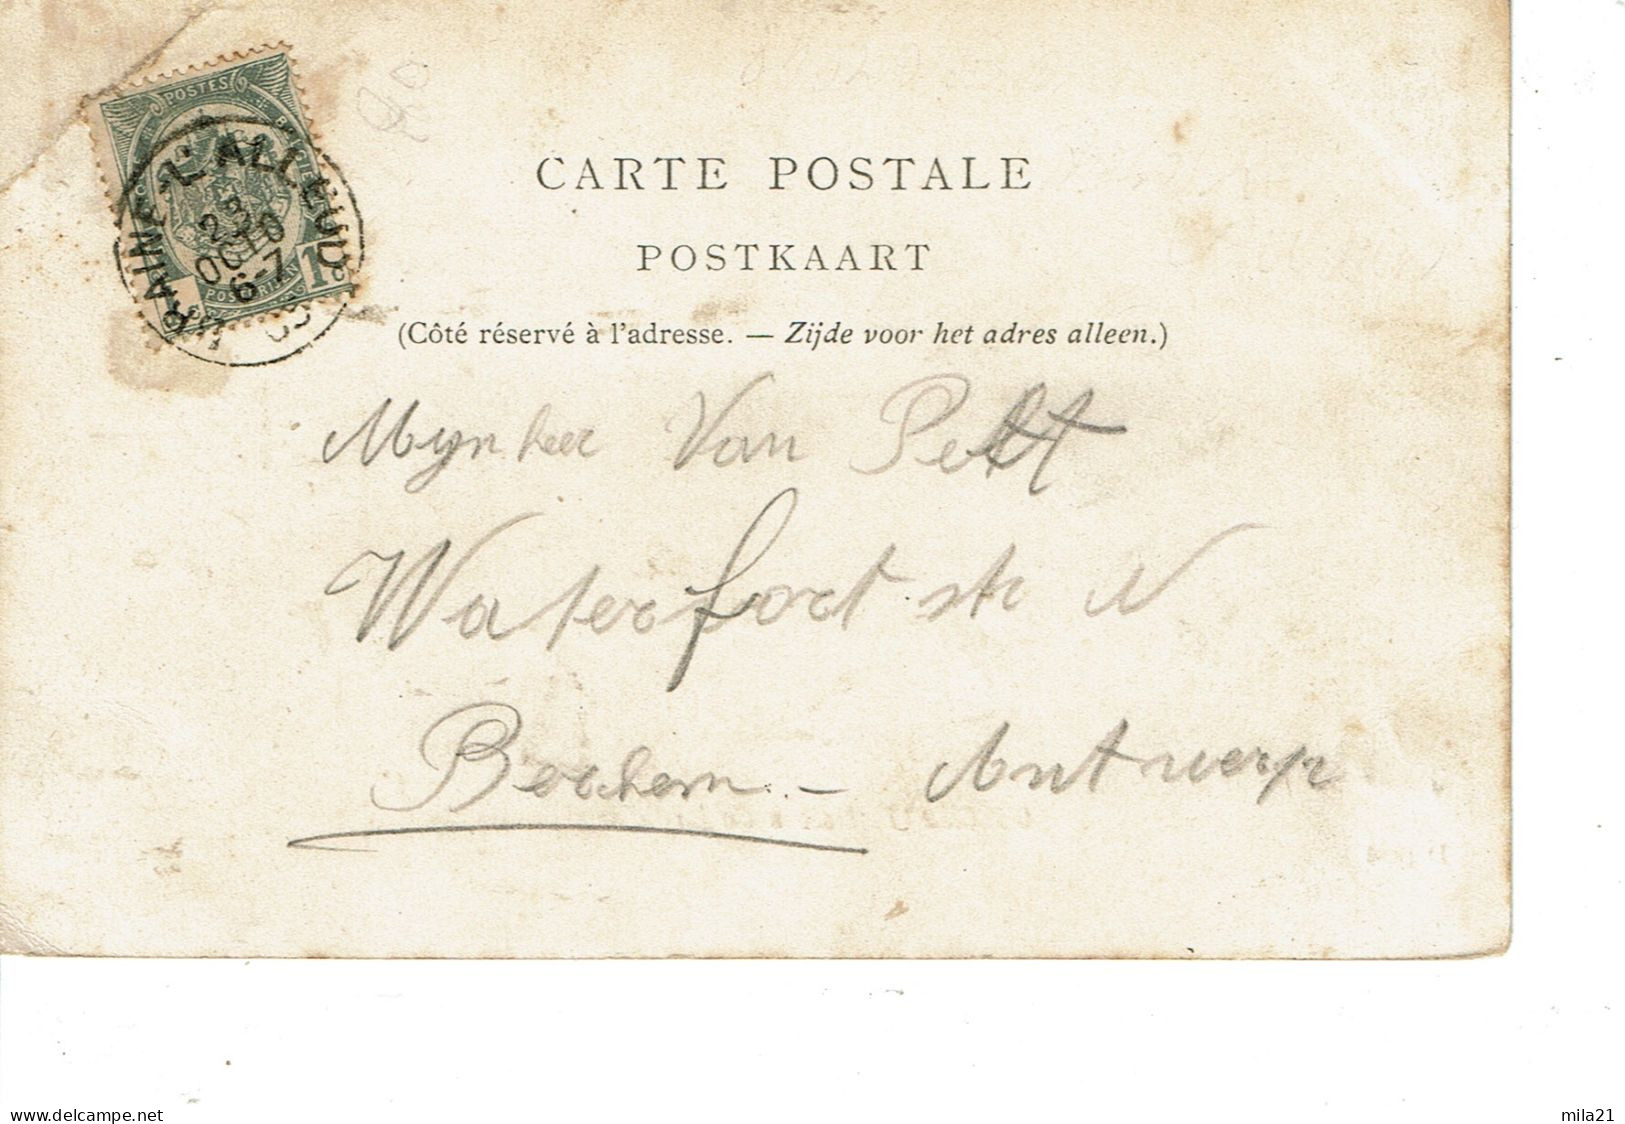 POSTES
BRAINE-L'ALLEUD
23
OCTO
6-7
CARTE POSTALE
POSTKAART
(Côté réservé à l'adresse. — Zijde voor het adres alleen.)
Mynheer Van Pelt
Waterfort str
Berchem. - Antwerpn
delcampe.net
mila21